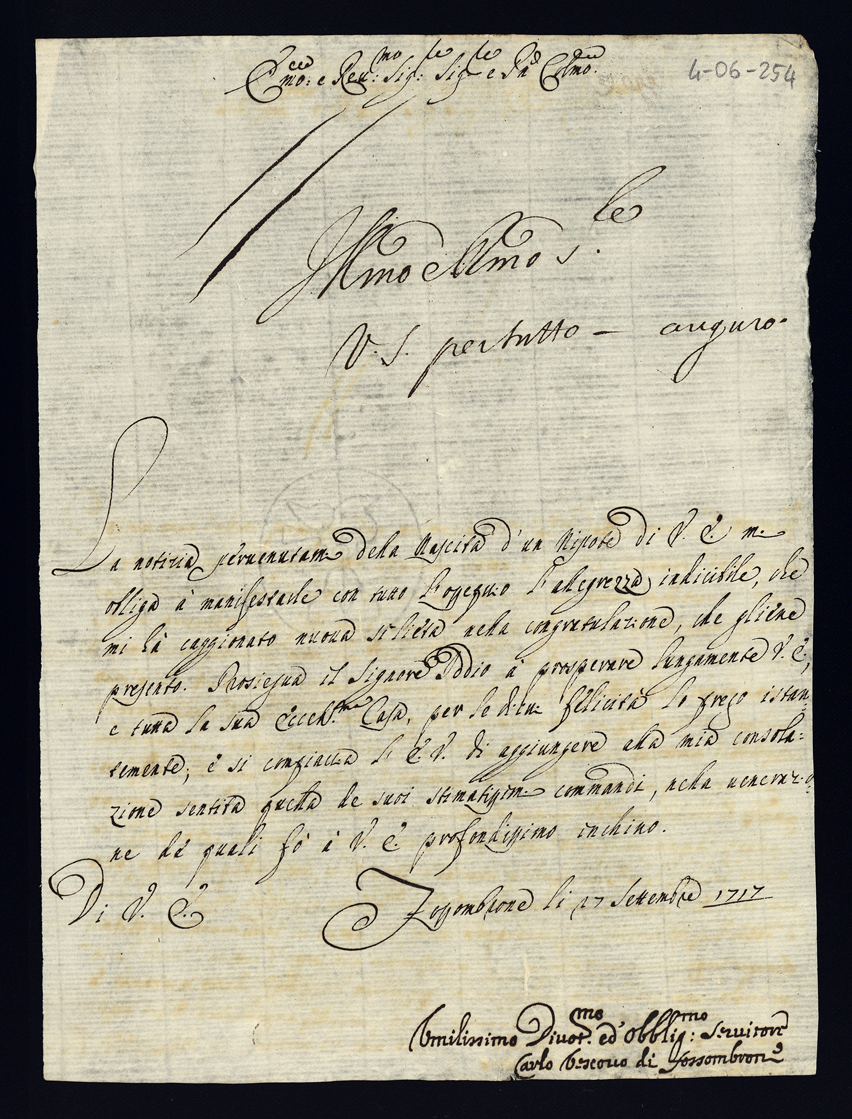 Ecc.mo: e Rev:mo Sig:le Sig.le e Pñ Col.mo
4-06-254
Jll.mo e Rmo S.le
V. S. per tutto – auguro.
La notizia pervenutam della Nascita d'un Nipote di V. E. m
obliga à manifestarle con tutto l'ossequio l'allegrezza indicibile, che
mi hà caggionato nuova sì lieta nella congratulazione, che gliene
presento. Prosiegua il Signore Iddio à prosperare lungamente V. E.,
e tutta la sua Eccell.ma Casa, per le di cui felicità lo prego istan:
temente; e si compiaccia l'E. V. di aggiungere alla mia consola:
zione sentita quella de suoi stimatissimi commandi, nella venerazio
ne dè quali fò à V. E. profondissimo inchino.
Di V. E. Fossombrone li 27 Settembre 1717
Umilissimo Divot.mo ed' Obblig:mo Servitore
Carlo Vescovo di Fossombrone